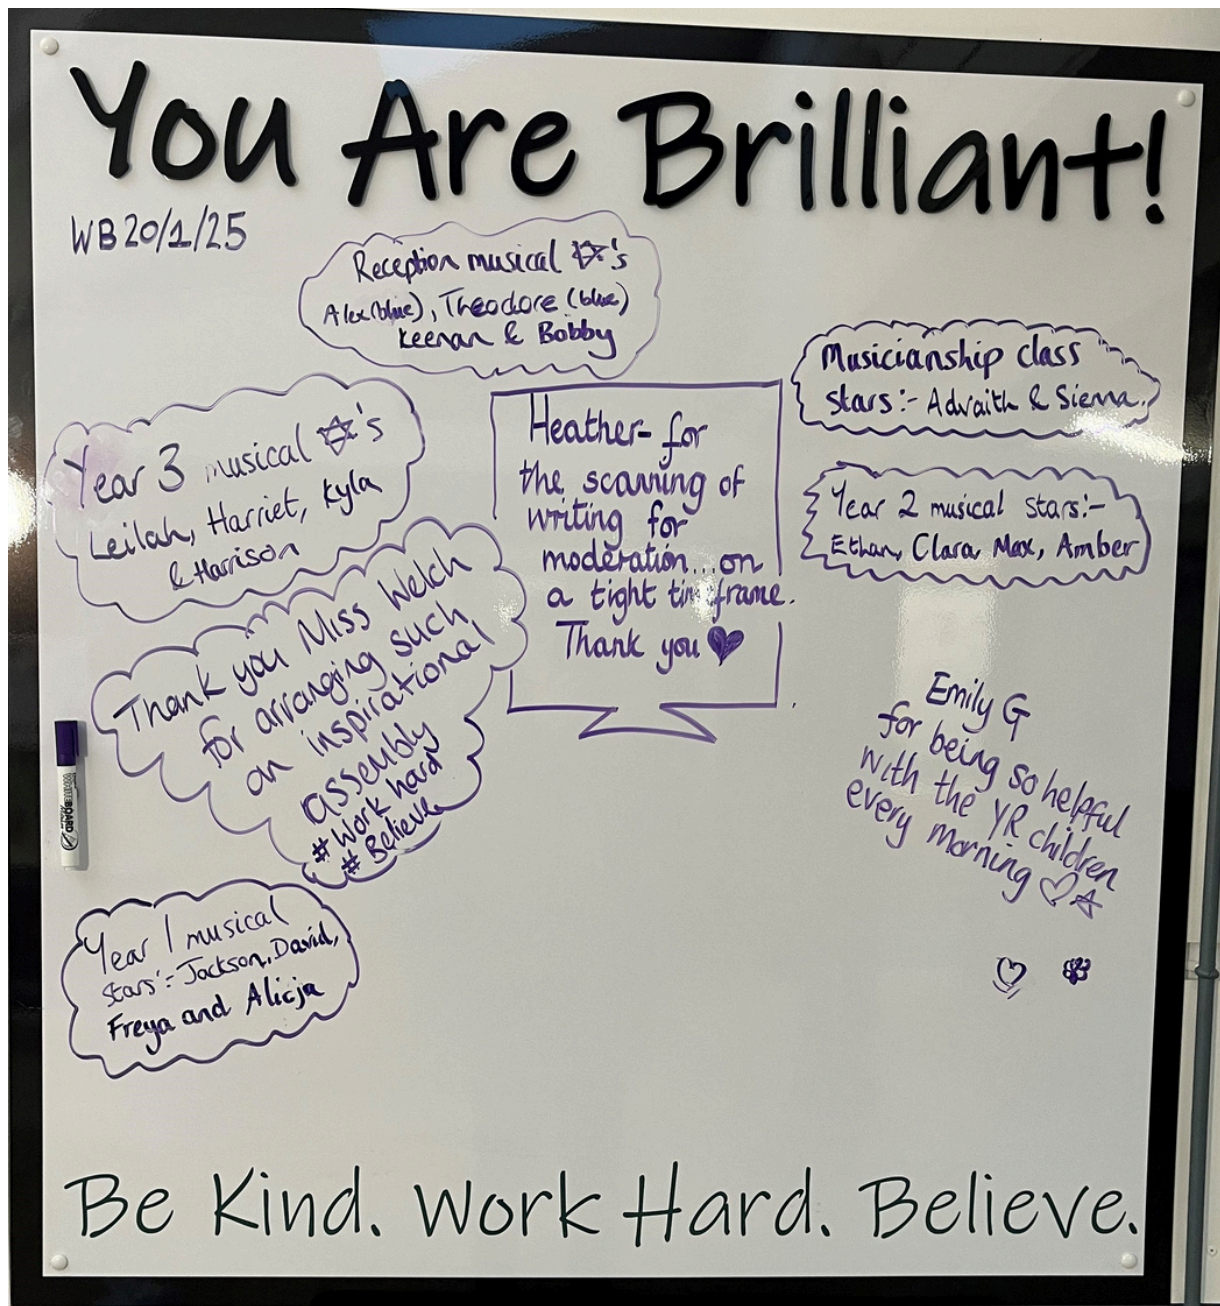 You Are Brilliant!
WB 20/1/25
Reception musical ✡'s
Alex (blue), Theodore (blue)
Keenan & Bobby
Musicianship class
stars:- Advaith & Sienna.
Year 3 musical ✡'s
Leilah, Harriet, Kyla
& Harrison
Heather- for
the scanning of
writing for
moderation...on
a tight timeframe.
Thank you ♥
Year 2 musical stars:-
Ethan, Clara, Max, Amber
Thank you Miss Welch
for arranging such
an inspirational
assembly
#Work hard
# Believe
Emily G
for being so helpful
with the YR children
every morning ♡☆
WHITEBOARD
Year 1 musical
stars:- Jackson, David,
Freya and Alicja
Be Kind. Work Hard. Believe.